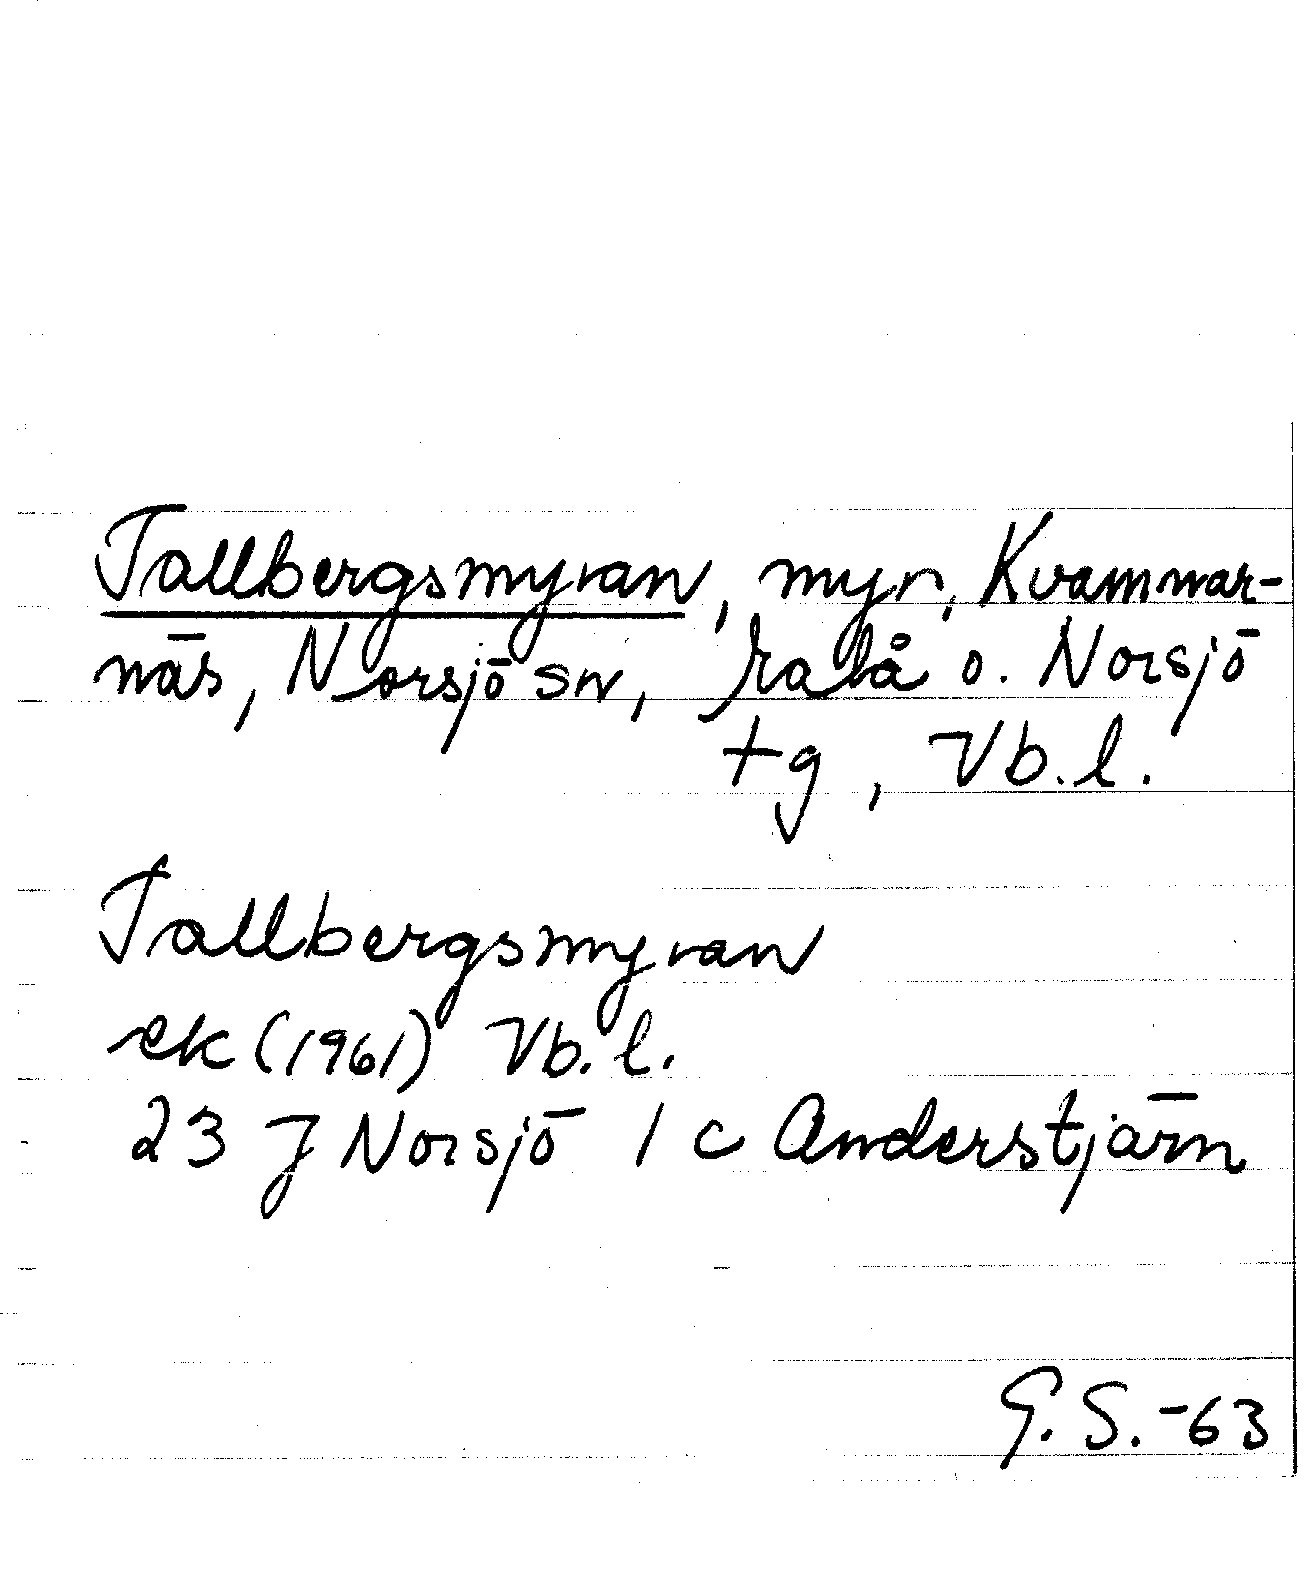 Tallbergsmyran, myr, Kvammar-
näs, Norsjö sn, Malå o. Norsjö
tg, Vb. l.
Tallbergsmyran
ek (1961) Vb. l.
23 J Norsjö 1 c Anderstjärn
G. S. -63